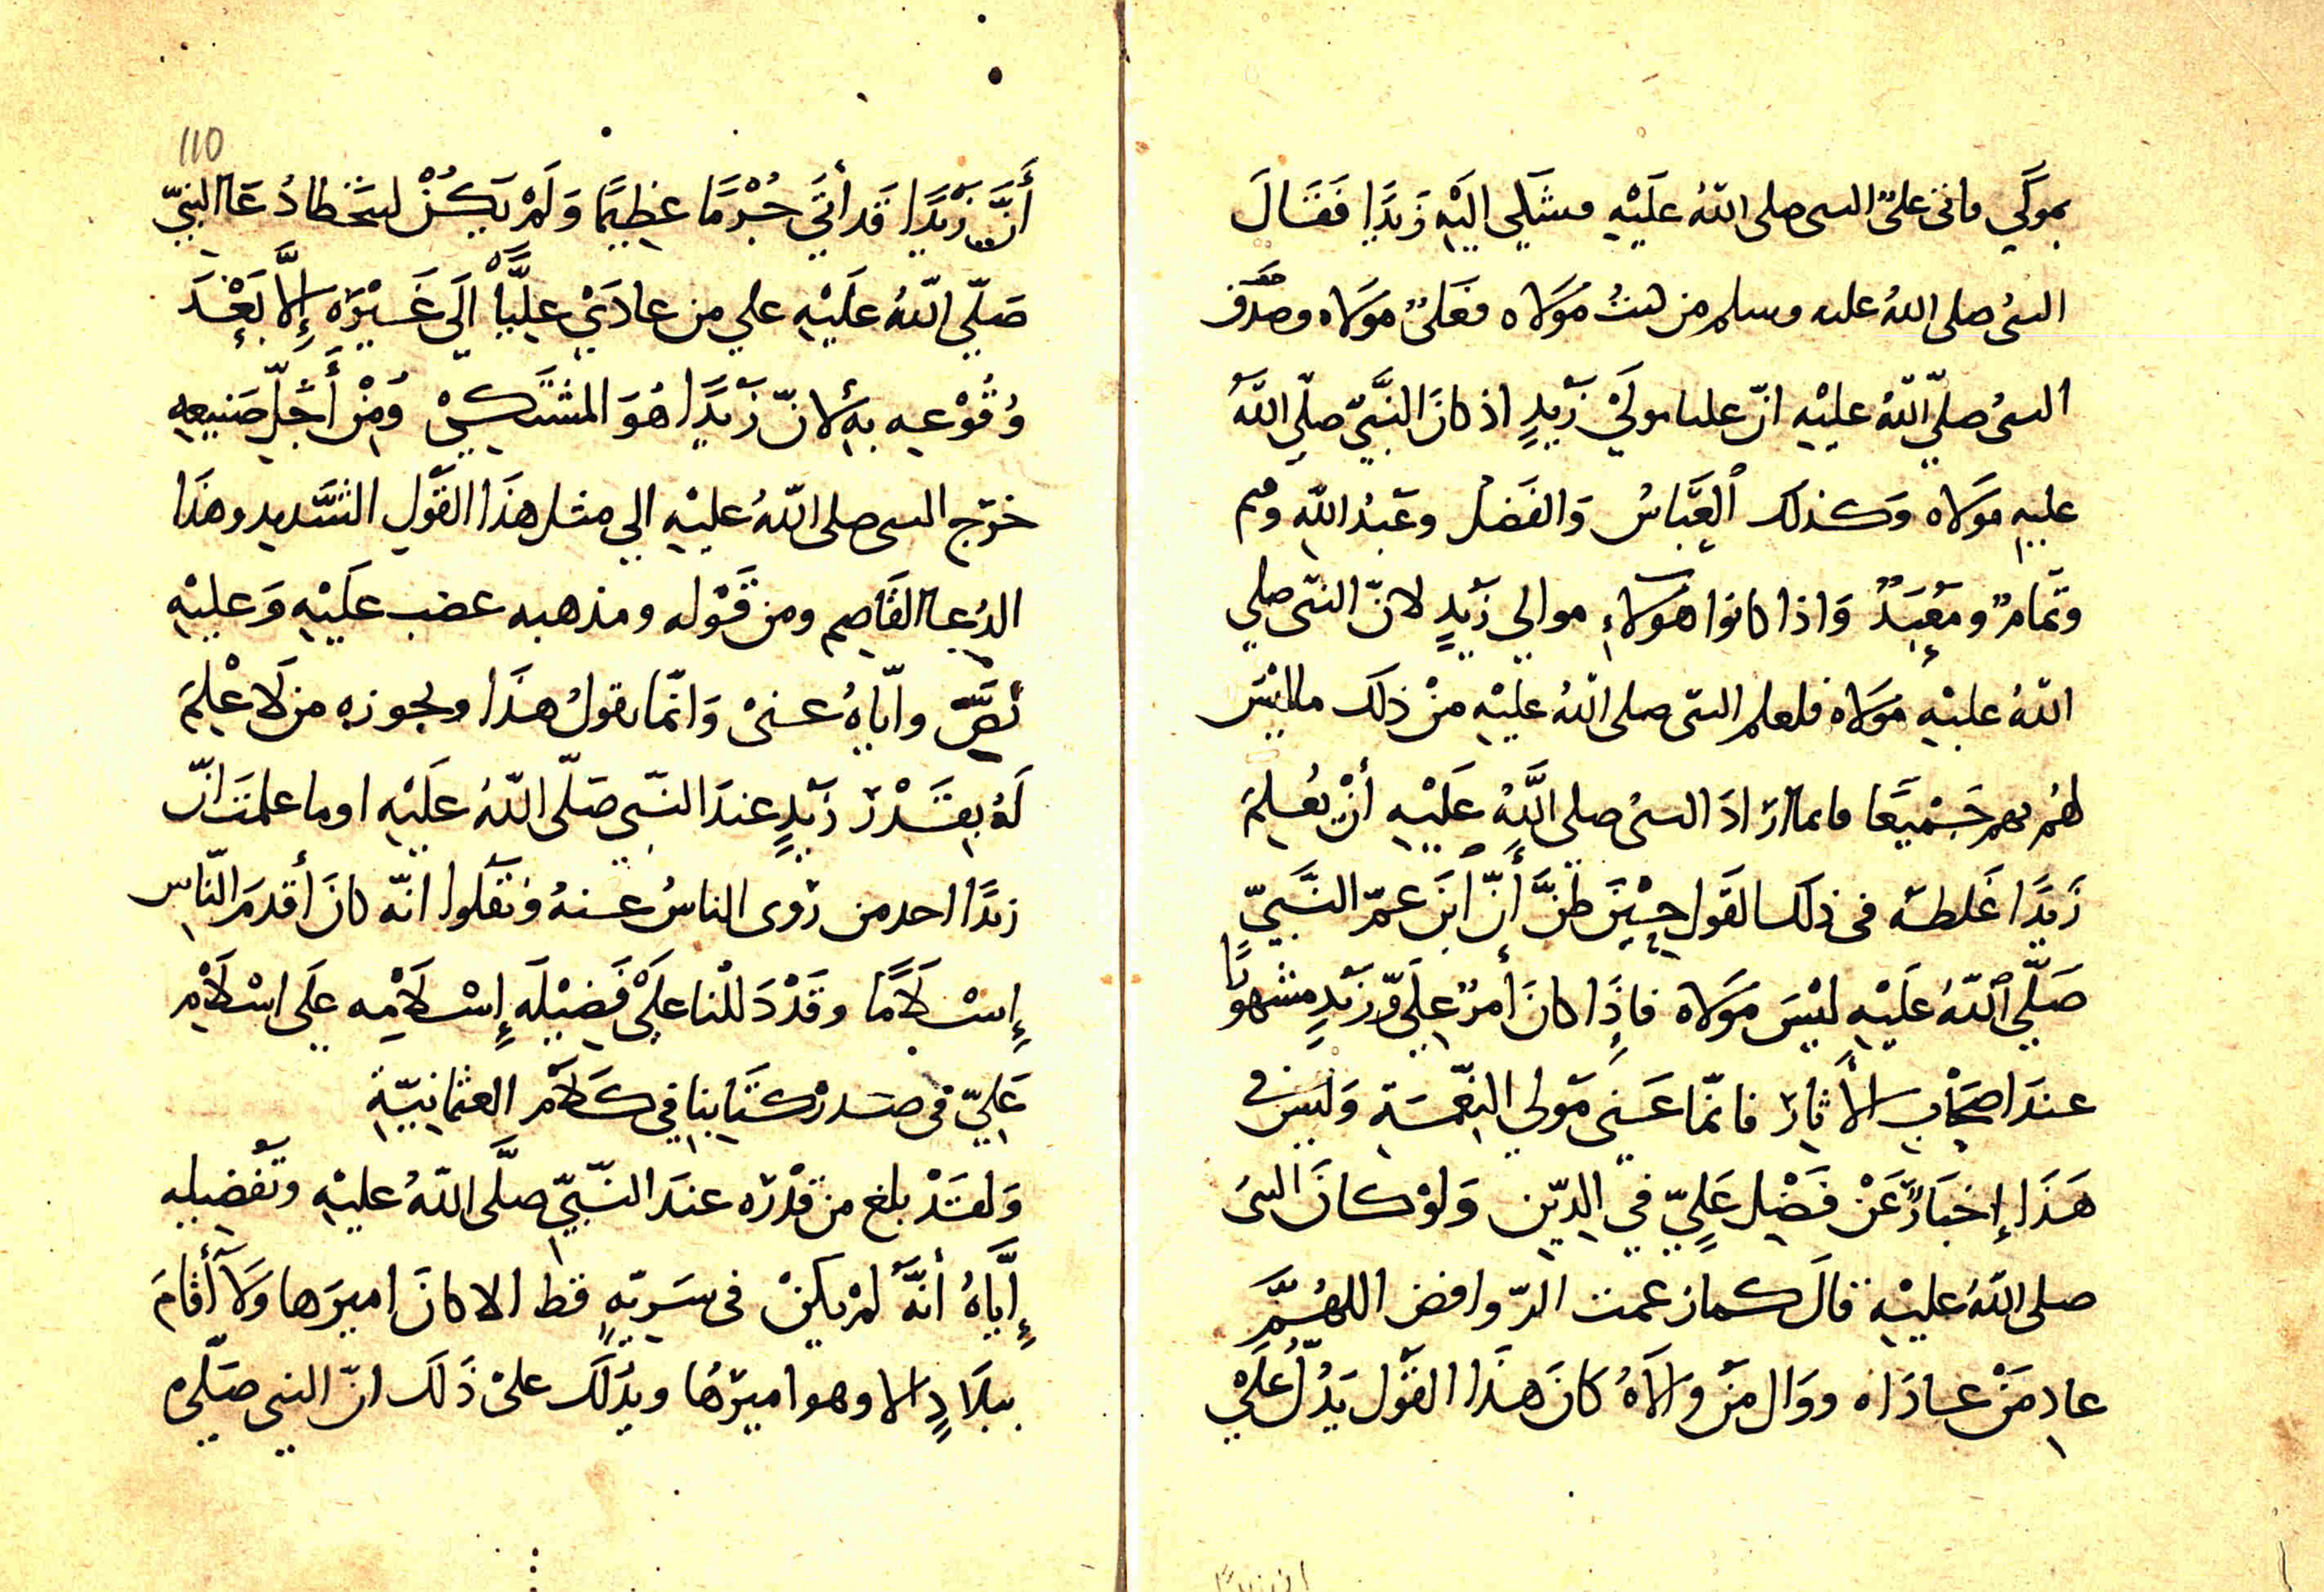 بمولي فاتى علىّ النبى صلى اللهُ عَلَيْهِ فشكى اليْهِ زَيْدًا فَقَالَ
النبىُ صلى اللهُ عليه وسلم من كنتُ مَوْلاه فعَلىٌ مَوْلاه وصَدَق
النبىُ صلّي اللهُ عليْهِ انّ عليا مولَىْ زَيْدٍ اذ كانَ النَّبيّ صلّي اللهُ
عليهِ مَوْلاه وَكذلك العَبَّاسُ وَالفَضلُ وعَبْدُ اللهِ وقثم
وتَمامٌ ومَعْبَدٌ وَاذا كانوا هَؤلاءِ موالي زَيْدٍ لانّ النبّى صلي
اللهُ عليْهِ مَوْلاه فلعلم النبّى صلى اللهُ عليْهِ منْ ذلك ما ليْسَ
لهُم بهم جَمْيعًا فانما ارَادَ النبىُ صلى اللَّهُ عَلَيْهِ أنْ يُعْلِمَ
زَيْدًا غَلطه فى ذلك القَول حِيْنَ ظَنَّ أَنّ ابنَ عمّ النَّبيّ
صَلّي اللهُ عَلَيْهِ ليْسَ مَوْلاه فاِذَا كانَ أمرُ عِليّ وَزَيْدٍ مشهورًا
عندَ اصحَابِ الأَثارِ فانمّا عَنى مَولي النِّعْمَة وَليْسَ فى
هَذَا إخبَارٌ عَنْ فَضْلِ عَلِيّ في الدّين وَلوْ كانَ النبىُ
صلى اللهُ عليْهِ قالَ كما زعمت الرّوافض اللهُمَّ
عادِ مَنْ عَادَاه ووَال مَن وَالاهُ كانَ هذَا القَوْل يَدُلُّ عَلَىْ
ان زيدًا
110
أَنَّ زَيْدًا قَد أتَى جُرْمًا عظِيمًا وَلَمْ يَكُنْ ليتَخطا دُعَا النبيّ
صَلّي اللهُ عَلَيْهِ علي من عادَىْ عليًّا الَى غَيْرَه إِلَّا بَعْدَ
وُقُوْعِه بهِ لانّ زَيْدًا هُوَ المشتَكىْ وَمِنْ أَجْلِ صَنيعهِ
خرّج النبى صلى اللهُ عليْهِ الي مثل هذَا القَوْلِ الشَّديد وهذَا
الدُعا القَاصِم ومن قَوْله ومذهبه عصب عَلَيْهِ وَعليْهِ
نَصَّ وايّاهُ عنىْ وَانمّا يقولُ هذَا ويجوزه من لَا عْلمَ
لَهُ بِقَدْرِ زَيْدٍ عندَ النّبي صَلّى اللهُ عَلَيْهِ اوما علمتَ انّ
زيدًا احد من رَوى الناسُ عنهُ ونَقَلوا انّه كانَ أقدمَ النّاسِ
إِسْلَامًا وقَدْ دَللْنا علَىْ فَضيْلَه إِسْلَامِه عَلَى اسْلَامِ
عَلِيّ فى صَدرْ كتَابنا في كَلَامْ العثمَانِيّة
وَلقَدْ بلغ من قدْرَه عندَ النّبيّ صلّى اللهُ عليْهِ وتَفْضيلِه
إِيّاهُ أنَّهُ لمْ يكنْ فى سَريّهٍ قط الا كانَ اميرَها وَلَا أقَامَ
ببلَادٍ الا وهو اميرُها ويدُلكَ علىْ ذَلكَ انّ النبى صَلّى